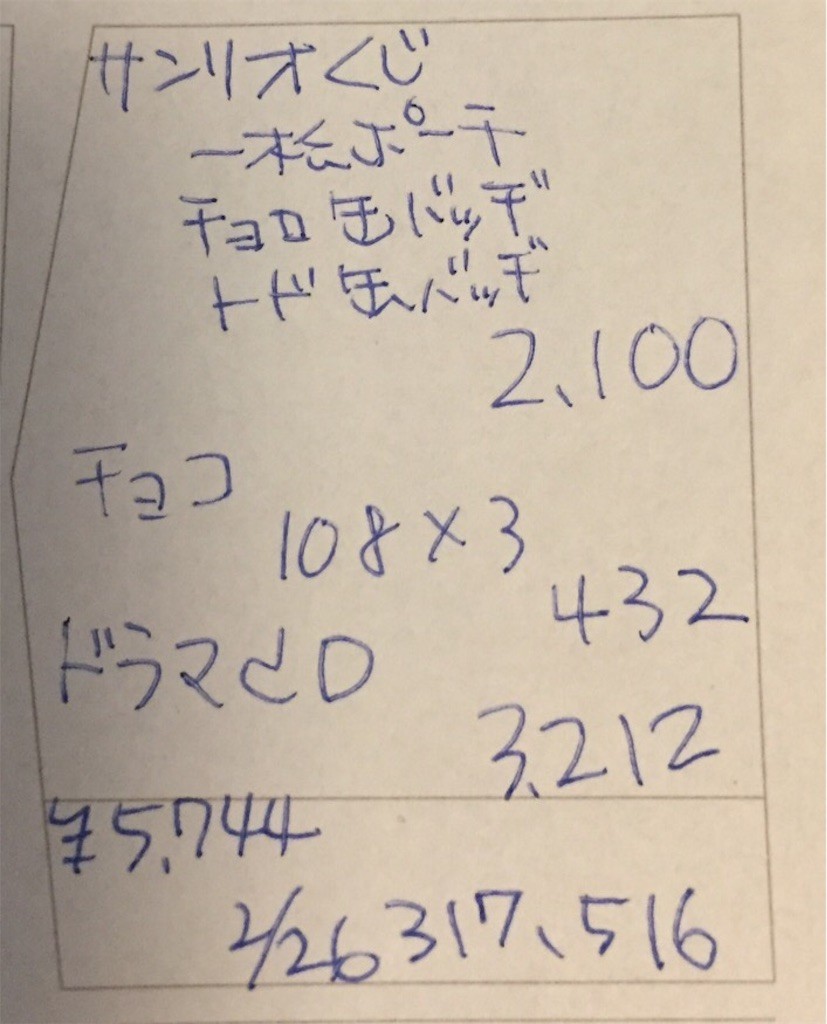 サンリオくじ
一松ポーチ
チョロ缶バッヂ
トド缶バッヂ
2,100
チョコ
108×3
432
ドラマCD
3,212
¥5,744
2/26 317,516